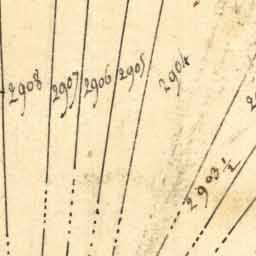 2908
2907
2906
2905
2904
2903 1/2